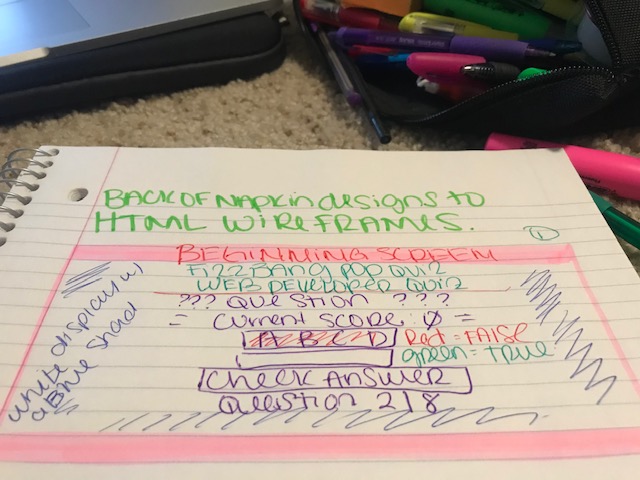 BACK OF NAPKIN designs to
HTML WIREFRAMES.
1
BEGINNING SCREEN
FizzBang POP QUIZ
WEB DEVELOPER QUIZ
??? QUESTION ???
= CURRENT SCORE: 0 =
A B C D Red = FAlSE
green = true
CHECK ANSWER
QUESTION 218
white display w/
a Blue Shad